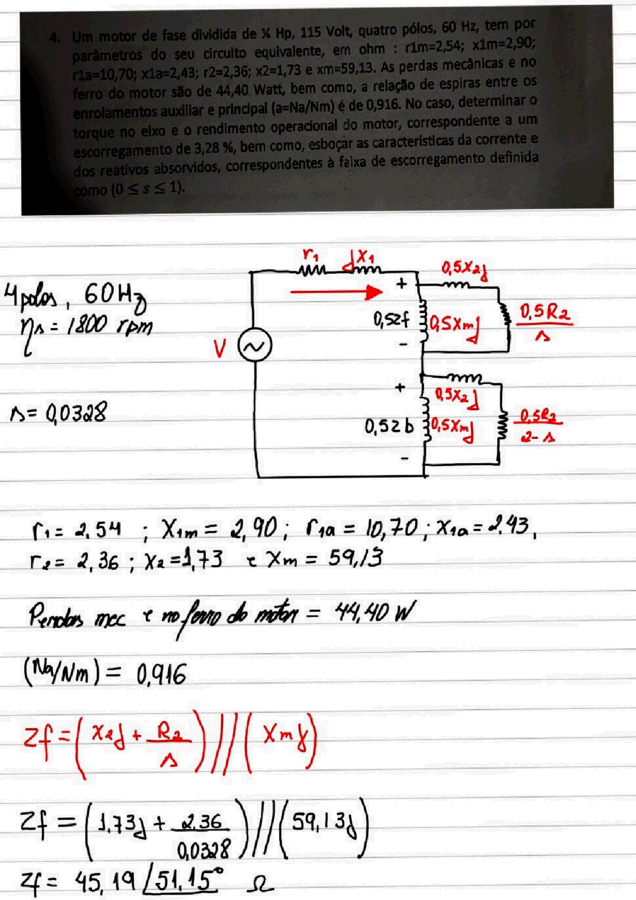 4. Um motor de fase dividida de ¼ Hp, 115 Volt, quatro pólos, 60 Hz, tem por
parâmetros do seu circuito equivalente, em ohm : r1m=2,54; x1m=2,90;
r1a=10,70; x1a=2,43; r2=2,36; x2=1,73 e xm=59,13. As perdas mecânicas e no
ferro do motor são de 44,40 Watt, bem como, a relação de espiras entre os
enrolamentos auxiliar e principal (a=Na/Nm) é de 0,916. No caso, determinar o
torque no eixo e o rendimento operacional do motor, correspondente a um
escorregamento de 3,28 %, bem como, esboçar as características da corrente e
dos reativos absorvidos, correspondentes à faixa de escorregamento definida
como (0 ≤ s ≤ 1).
4 polos, 60Hz
ηs = 1800 rpm
s = 0,0328
r1 jx1
V
+
0,5zf
-
0,5x2j
0,5xmj
0,5R2/s
+
0,5zb
-
0,5x2j
0,5xmj
0,5R2/2-s
r1 = 2,54 ; X1m = 2,90 ; r1a = 10,70 ; x1a = 2,43,
r2 = 2,36 ; x2 = 1,73 e xm = 59,13
Perdas mec e no ferro do motor = 44,40 W
(Na/Nm) = 0,916
Zf = (x2j + R2/s) // (xmj)
Zf = (1,73j + 2,36/0,0328) // (59,13j)
Zf = 45,19 ∠51,15° Ω